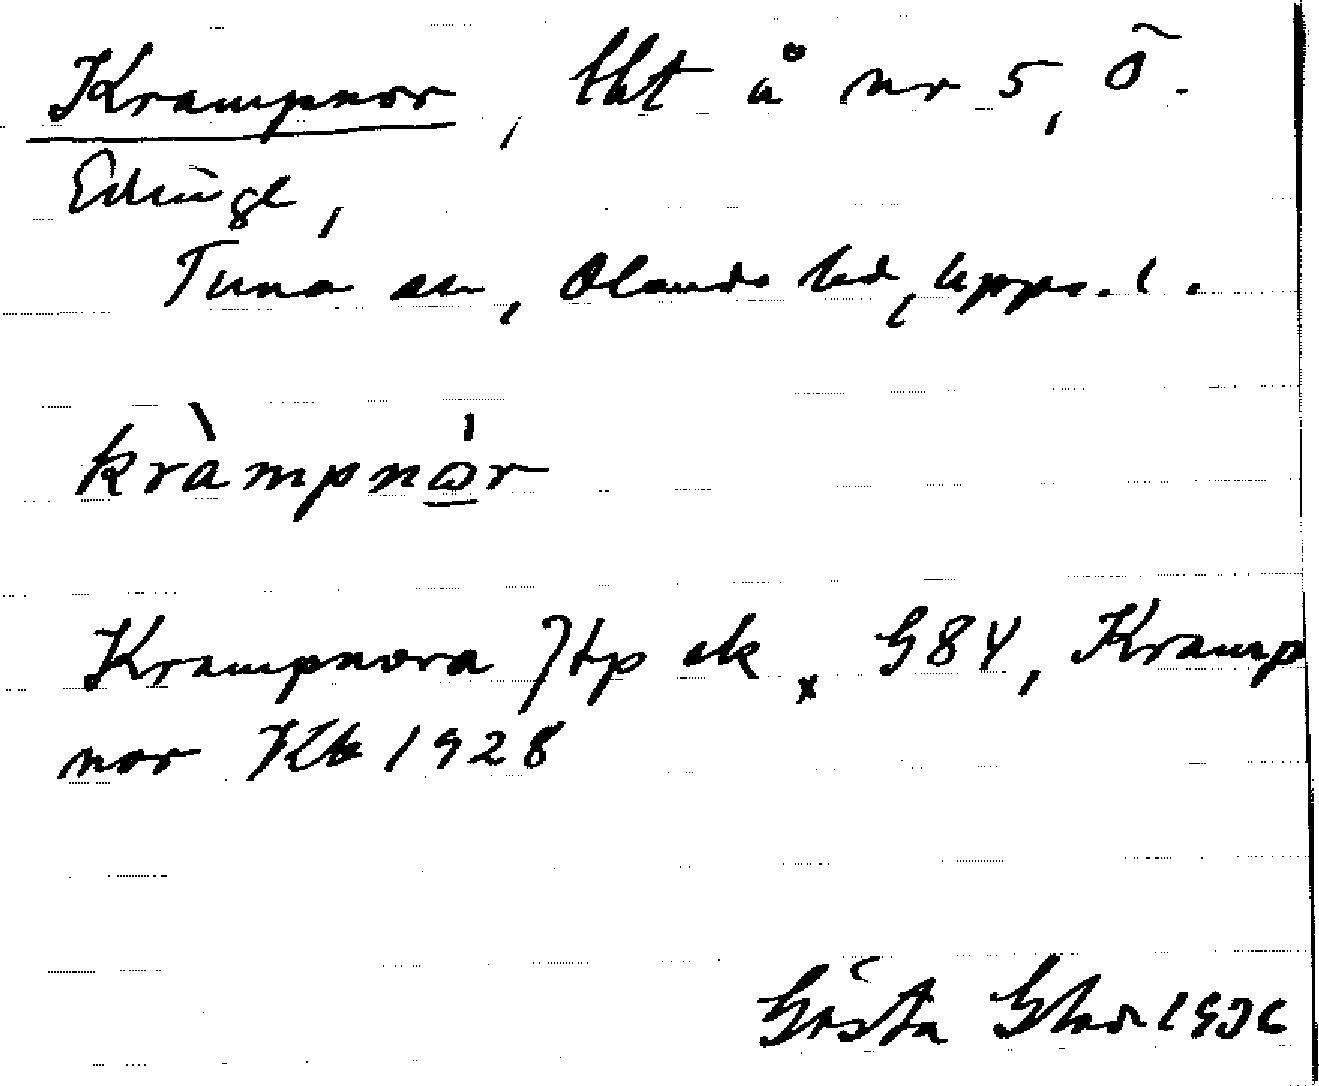 Krampnor, lht å nr 5, Ö.
Edinge,
Tuna sn, Olands hd, Upps. l.
kràmpnór
Krampnora Jtp ek G84, Kramp
nor Kb 1928
Gösta 1936